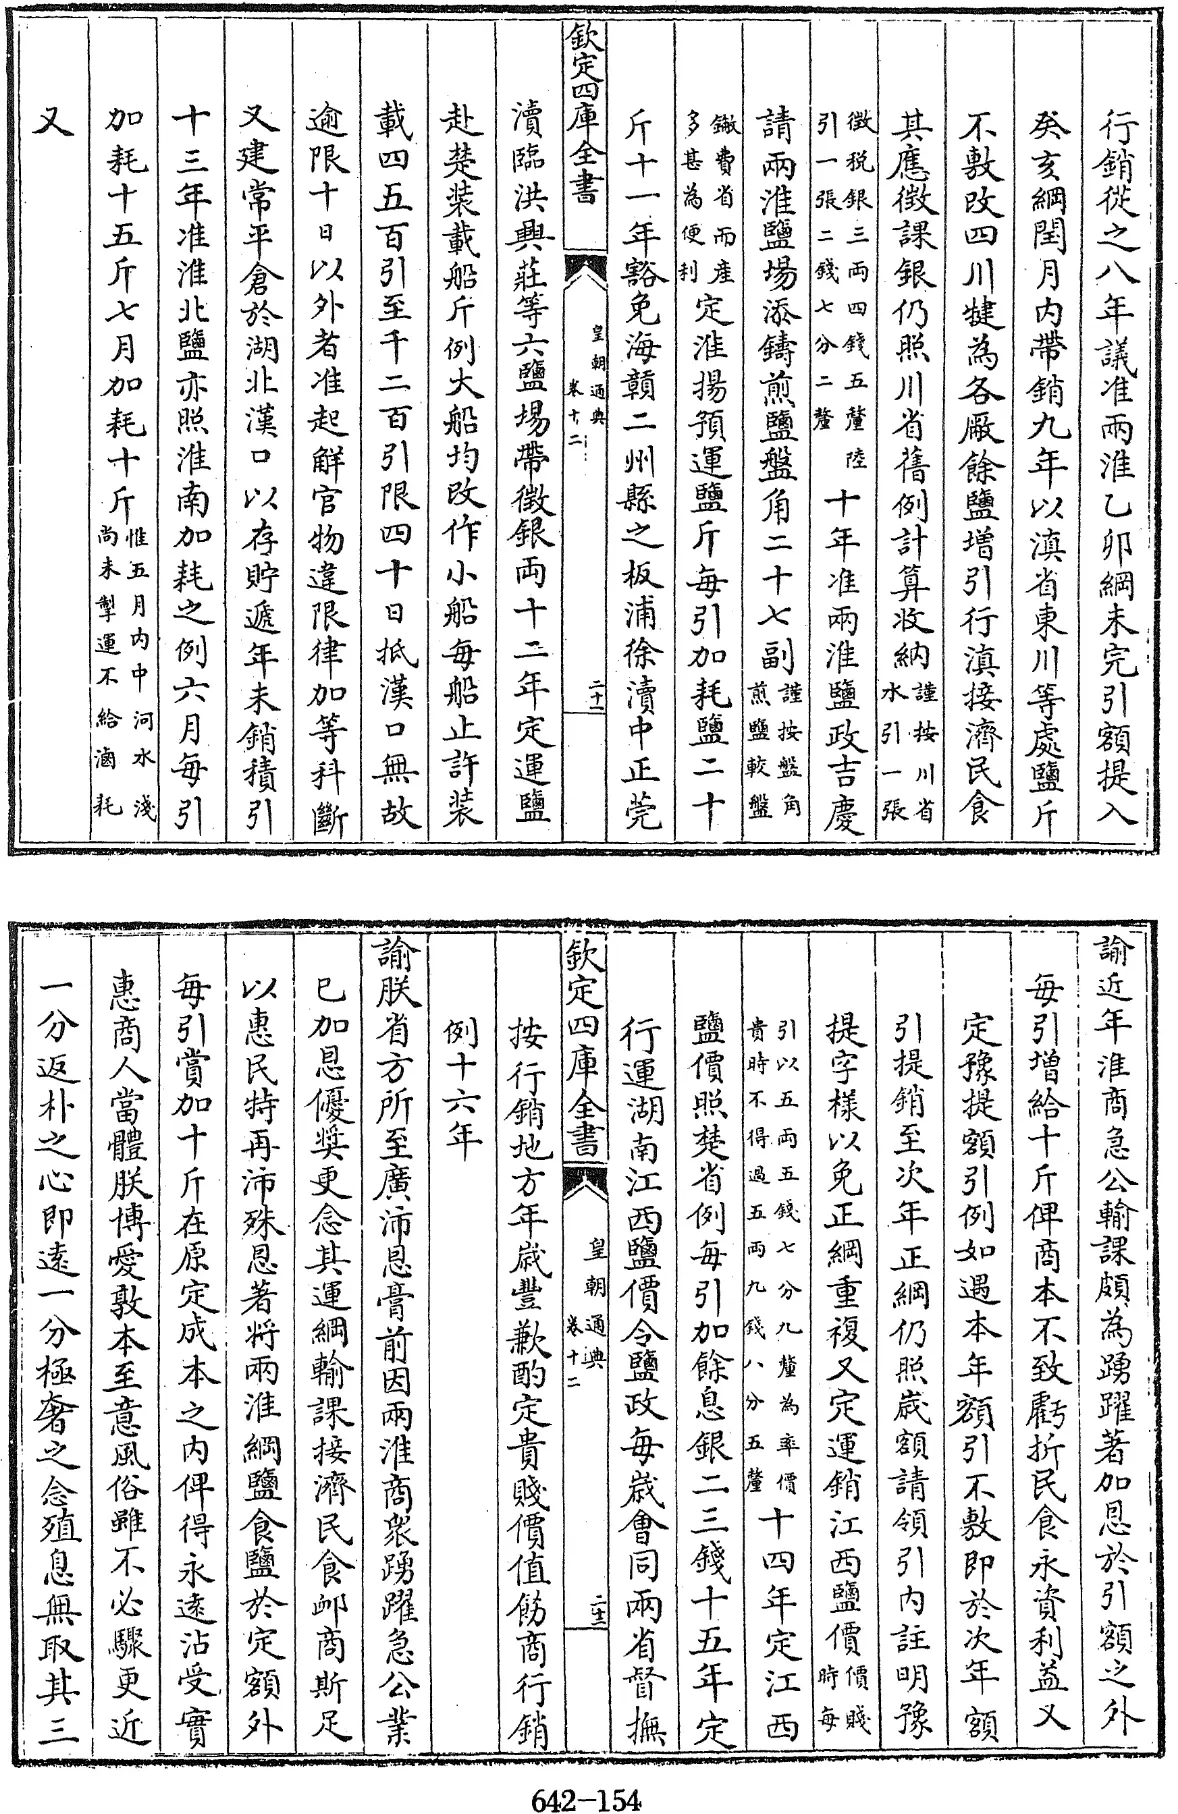 行銷從之八年議准兩淮乙卯綱未完引額提入
癸亥綱閏月内帶銷九年以滇省東川等處鹽斤
不敷改四川犍為各厰餘鹽增引行滇接濟民食
其應徵課銀仍照川省舊例計算收納謹按川省水引一張
徵税銀三兩四錢五釐陸引一張二錢七分二釐十年准兩淮鹽政吉慶
請兩淮鹽場添鑄煎鹽盤角二十七副謹按盤角煎鹽較盤
䥽費省而產多甚為便利定淮揚預運鹽斤每引加耗鹽二十
斤十一年豁免海贛二州縣之板浦徐瀆中正莞
欽定四庫全書
皇朝通典
卷十二
二十一
瀆臨洪興莊等六鹽場帶徵銀兩十二年定運鹽
赴楚裝載船斤例大船均改作小船每船止許裝
載四五百引至千二百引限四十日抵漢口無故
逾限十日以外者准起解官物違限律加等科斷
又建常平倉於湖北漢口以存貯遞年未銷積引
十三年准淮北鹽亦照淮南加耗之例六月每引
加耗十五斤七月加耗十斤惟五月内中河水淺尚未掣運不給滷耗
又
諭近年淮商急公輸課頗為踴躍著加恩於引額之外
每引增給十斤俾商本不致虧折民食永資利益又
定豫提額引例如遇本年額引不敷即於次年額
引提銷至次年正綱仍照歲額請領引内註明豫
提字樣以免正綱重複又定運銷江西鹽價價賤時每
引以五兩五錢七分九釐為率價貴時不得過五兩九錢八分五釐十四年定江西
鹽價照楚省例每引加餘息銀二三錢十五年定
行運湖南江西鹽價令鹽政每歲會同兩省督撫
欽定四庫全書
皇朝通典
卷十二
二十二
按行銷地方年歲豐歉酌定貴賤價值飭商行銷
例十六年
諭朕省方所至廣沛恩膏前因兩淮商衆踴躍急公業
已加恩優奬更念其運綱輸課接濟民食卹商斯足
以惠民特再沛殊恩著將兩淮綱鹽食鹽於定額外
每引賞加十斤在原定成本之内俾得永遠沾受實
惠商人當體朕博愛敦本至意風俗雖不必驟更近
一分返朴之心即遠一分極奢之念殖息無取其三
642-154